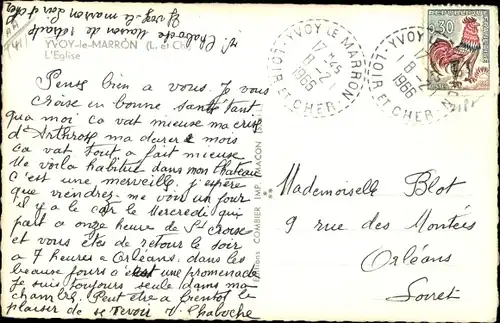 Mr Chaboche Maison de retraite
Yvoy-le-marron Loir et Cher
YVOY-le-MARRON (L. et CH.)
L'Eglise
Pense bien a vous. Je vous
croise en bonne santé tant
qua moi ca vat mieuse ma crise
d'Arthrose ma durer 2 mois
ca vat tout a fait mieuse.
Me voila habituè dans mon Chateau
C'est une merveille. j'espere
que viendres me voir un jour
il y a le car le Mercredi qui
part a onze heure de St croix
et vous êtes de retour le soir
a 7 heures a Orléans. dans les
beause jours c'est une promenade
Je suis toujours seule dans ma
chambre. Peut être a bientôt le
plaisir de se revoir V. Chaboche
Editions COMBIER IMP. MACON
YVOY LE MARRON
17-45
8-2
1966
LOIR ET CHER
YVOY LE MARRON
18-2
1966
LOIR ET CHER
0,30
Mademoiselle Blot
9 rue des Montées
Orléans
Loiret